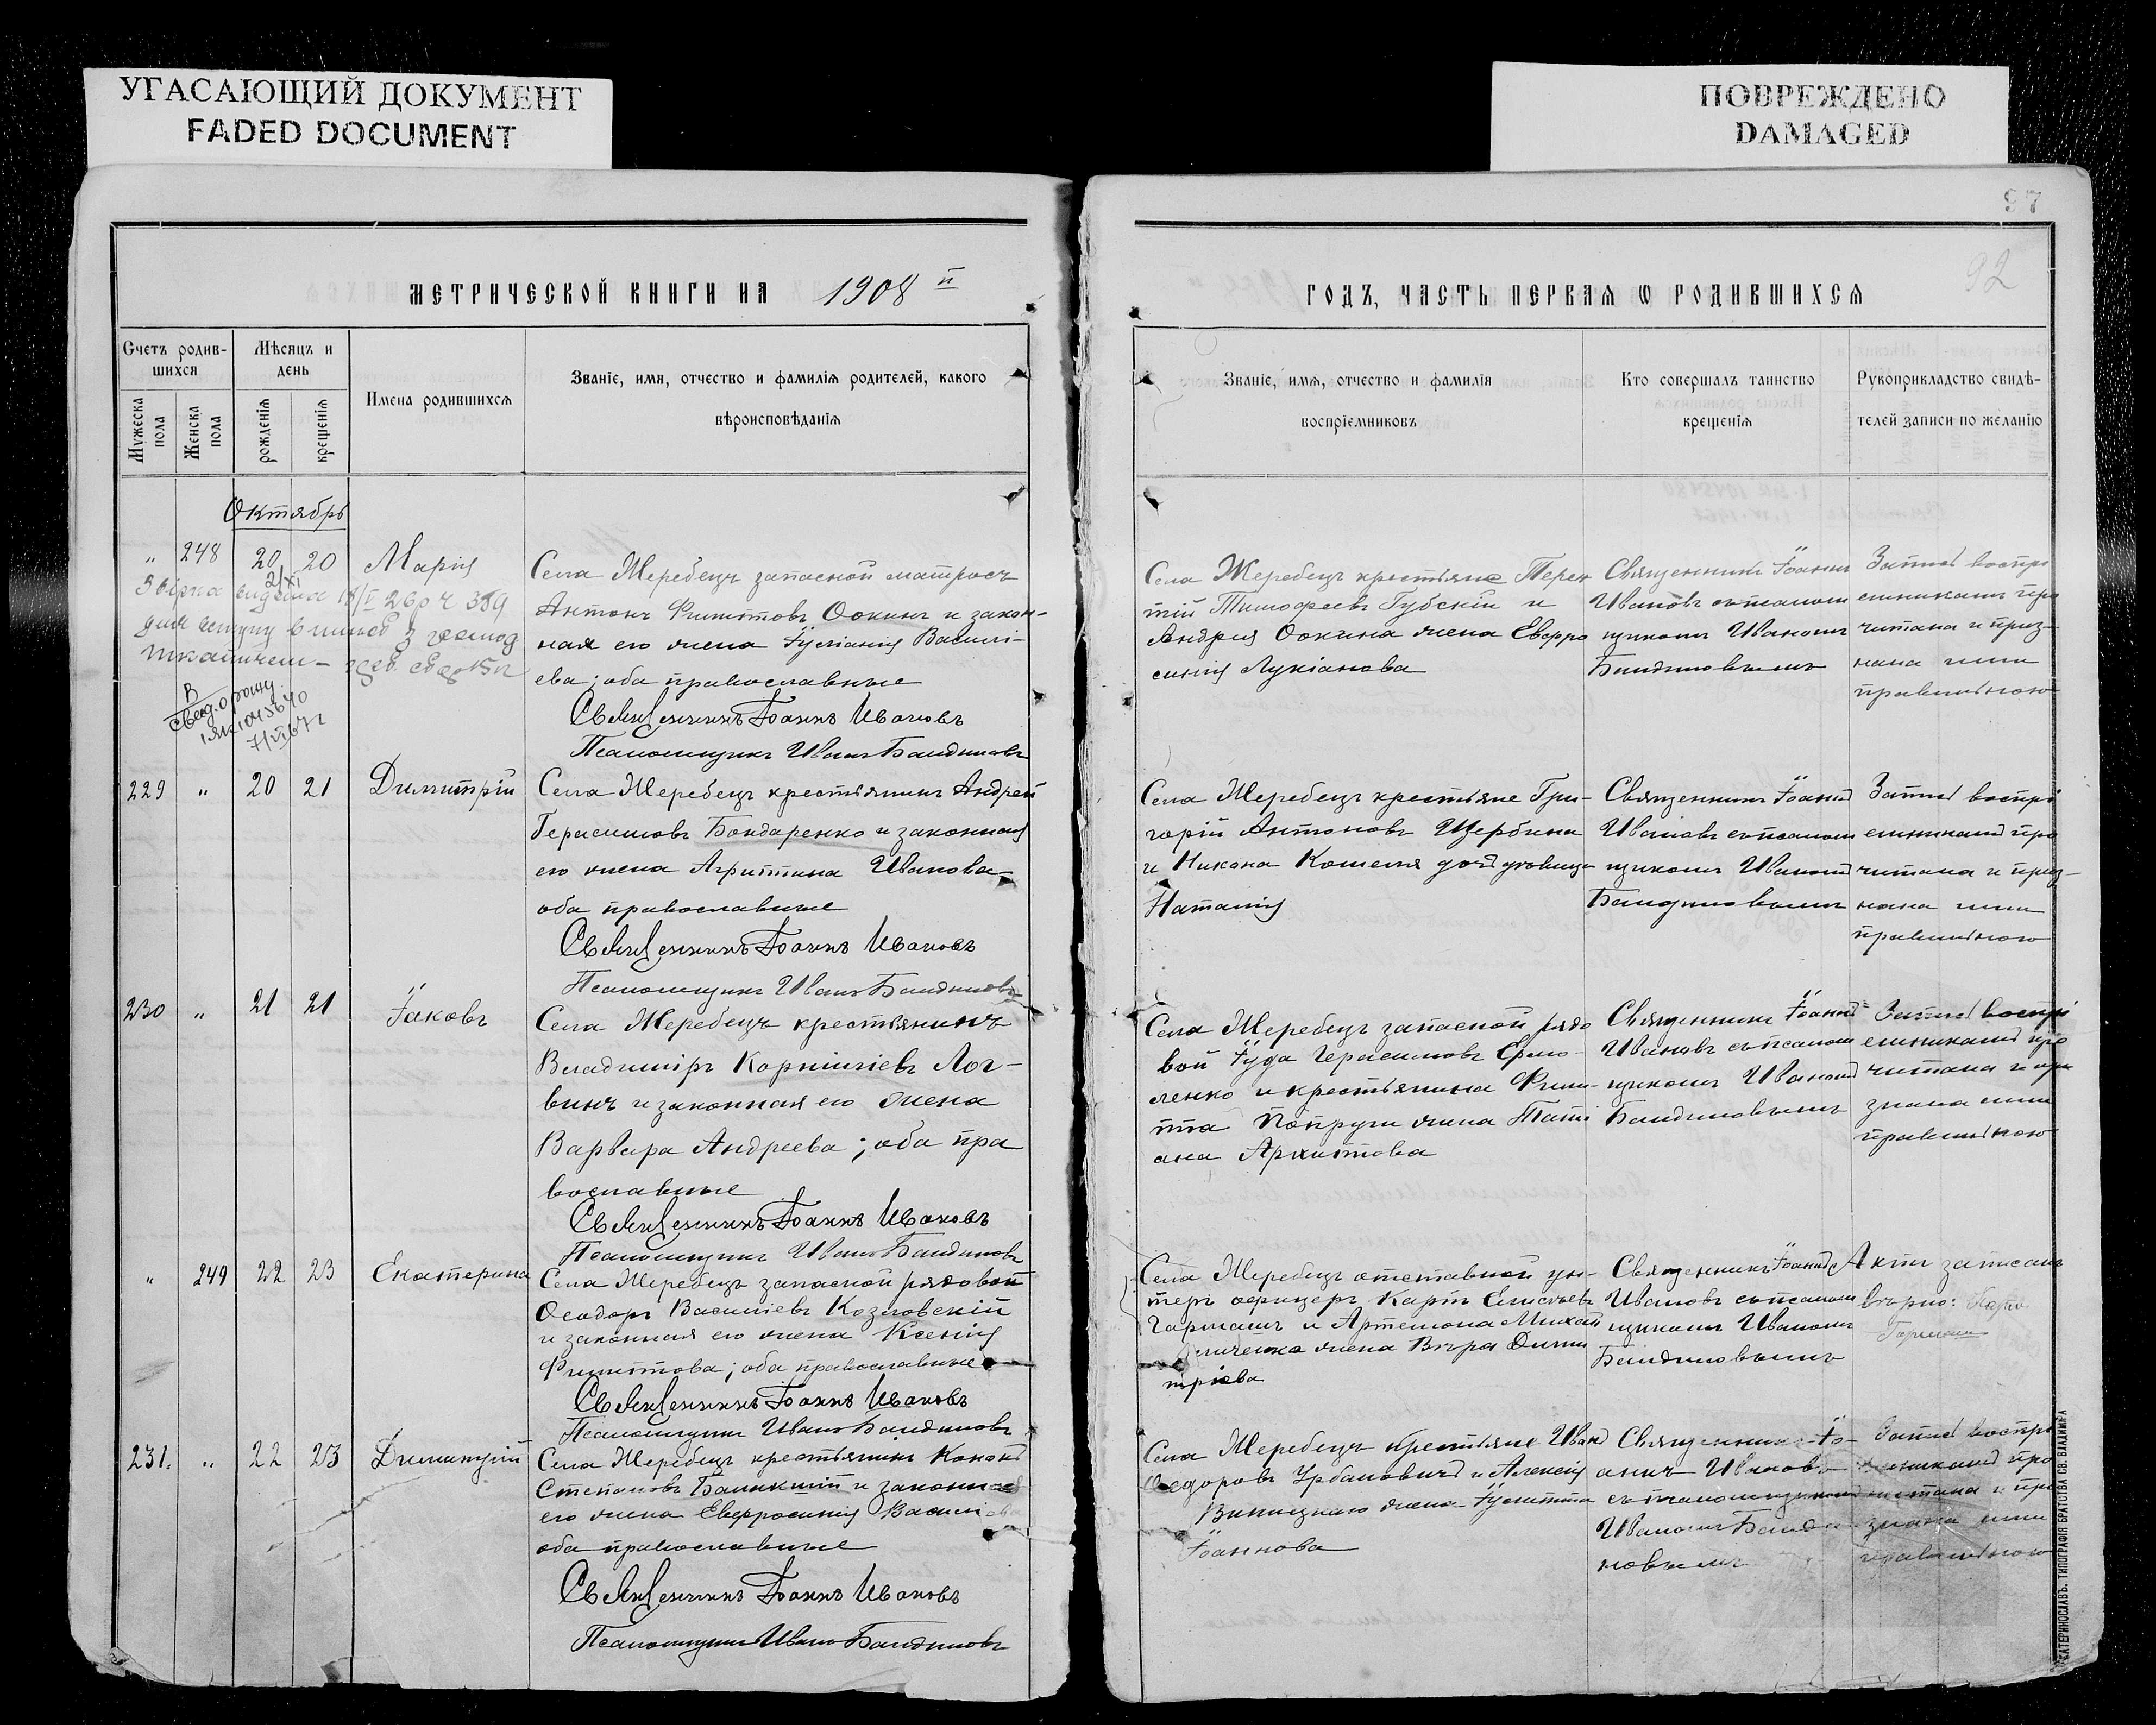 УГАСАЮЩИЙ ДОКУМЕНТ
FADED DOCUMENT
ПОВРЕЖДЕНО
DAMAGED
97
92
МЕТРИЧЕСКОЙ КНИГИ НА 1908 й
ГОДЪ, ЧАСТЬ ПЕРВАЯ Ѡ РОДИВШИХСЯ
Счетъ родив-
шихся
Мужеска пола
Женска пола
Мѣсяцъ и
день
рожденія
крещенія
Имена родившихся
Званіе, имя, отчество и фамилія родителей, какого
вѣроисповѣданія
Званіе, имя, отчество и фамилія
воспріемниковъ
Кто совершалъ таинство
крещенія
Рукоприкладство свидѣ-
телей записи по желанію
Октябрь
" 248 20 20 Марія
Села Жеребецъ запасной матросъ
Антонъ Филипповъ Ѳокинъ и закон-
ная его жена Іуліанія Василі-
ева; оба православные
Священникъ Іоаннъ Ивановъ
Псаломщикъ Иванъ Бандиновъ
Села Жеребецъ крестьяне Терен
тій Тимофеевъ Губскій и
Андрея Ѳокина жена Евфро
синія Лукіанова
Священникъ Іоаннъ
Ивановъ съ псалом
щикомъ Иваномъ
Бандиновымъ
Запись воспрі
емниками про
читана и приз-
нана ими
правильною
229 " 20 21 Димитрій
Села Жеребецъ крестьянинъ Андрей
Герасимовъ Бондаренко и законная
его жена Агриппина Иванова
оба православные
Священникъ Іоаннъ Ивановъ
Псаломщикъ Иванъ Бандиновъ
Села Жеребецъ крестьяне Гри-
горій Антоновъ Щербина
и Никона Кошеля дочь дѣвица
Наталія
Священникъ Іоаннъ
Ивановъ съ псалом
щикомъ Иваномъ
Бандиновымъ
Запись воспрі
емниками про
читана и приз-
нана ими
правильною
230 " 21 21 Іаковъ
Села Жеребецъ крестьянинъ
Владиміръ Корниліевъ Лог-
винъ и законная его жена
Варвара Андреева; оба пра
вославные
Священникъ Іоаннъ Ивановъ
Псаломщикъ Иванъ Бандиновъ
Села Жеребецъ запасной рядо
вой Іуда Герасимовъ Ермо-
ленко и крестьянина Фили-
ппа Попруги жена Тати
ана Архиппова
Священникъ Іоаннъ
Ивановъ съ псалом
щикомъ Иваномъ
Бандиновымъ
Запись воспрі
емниками про
читана и при
знана ими
правильною
" 249 22 23 Екатерина
Села Жеребецъ запасной рядовой
Ѳеодоръ Василіевъ Козловскій
и законная его жена Ксенія
Филиппова; оба православные
Священникъ Іоаннъ Ивановъ
Псаломщикъ Иванъ Бандиновъ
Села Жеребецъ отставной ун-
теръ офицеръ Карпъ Елисѣевъ
Гармашъ и Артемона Михай
личенка жена Вѣра Дими
тріева
Священникъ Іоаннъ
Ивановъ съ псалом
щикомъ Иваномъ
Бандиновымъ
Актъ записанъ
вѣрно: Карпъ
Гармашъ
231. " 22 23 Димитрій
Села Жеребецъ крестьянинъ Кононъ
Степановъ и законная
его жена Евфросинія Василіева
оба православные
Священникъ Іоаннъ Ивановъ
Псаломщикъ Иванъ Бандиновъ
Села Жеребецъ крестьяне Иванъ
Ѳеодоровъ Урбановичъ и Алексія
Винницкаго жена Іулитта
Іоаннова
Священникъ Іо-
аннъ Ивановъ
съ псаломщикомъ
Иваномъ Банди
новымъ
Запись воспрі
емниками про
читана и при
знана ими
правильною
ЕКАТЕРИНОСЛАВЪ. ТИПОГРАФІЯ БРАТСТВА СВ. ВЛАДИМІРА